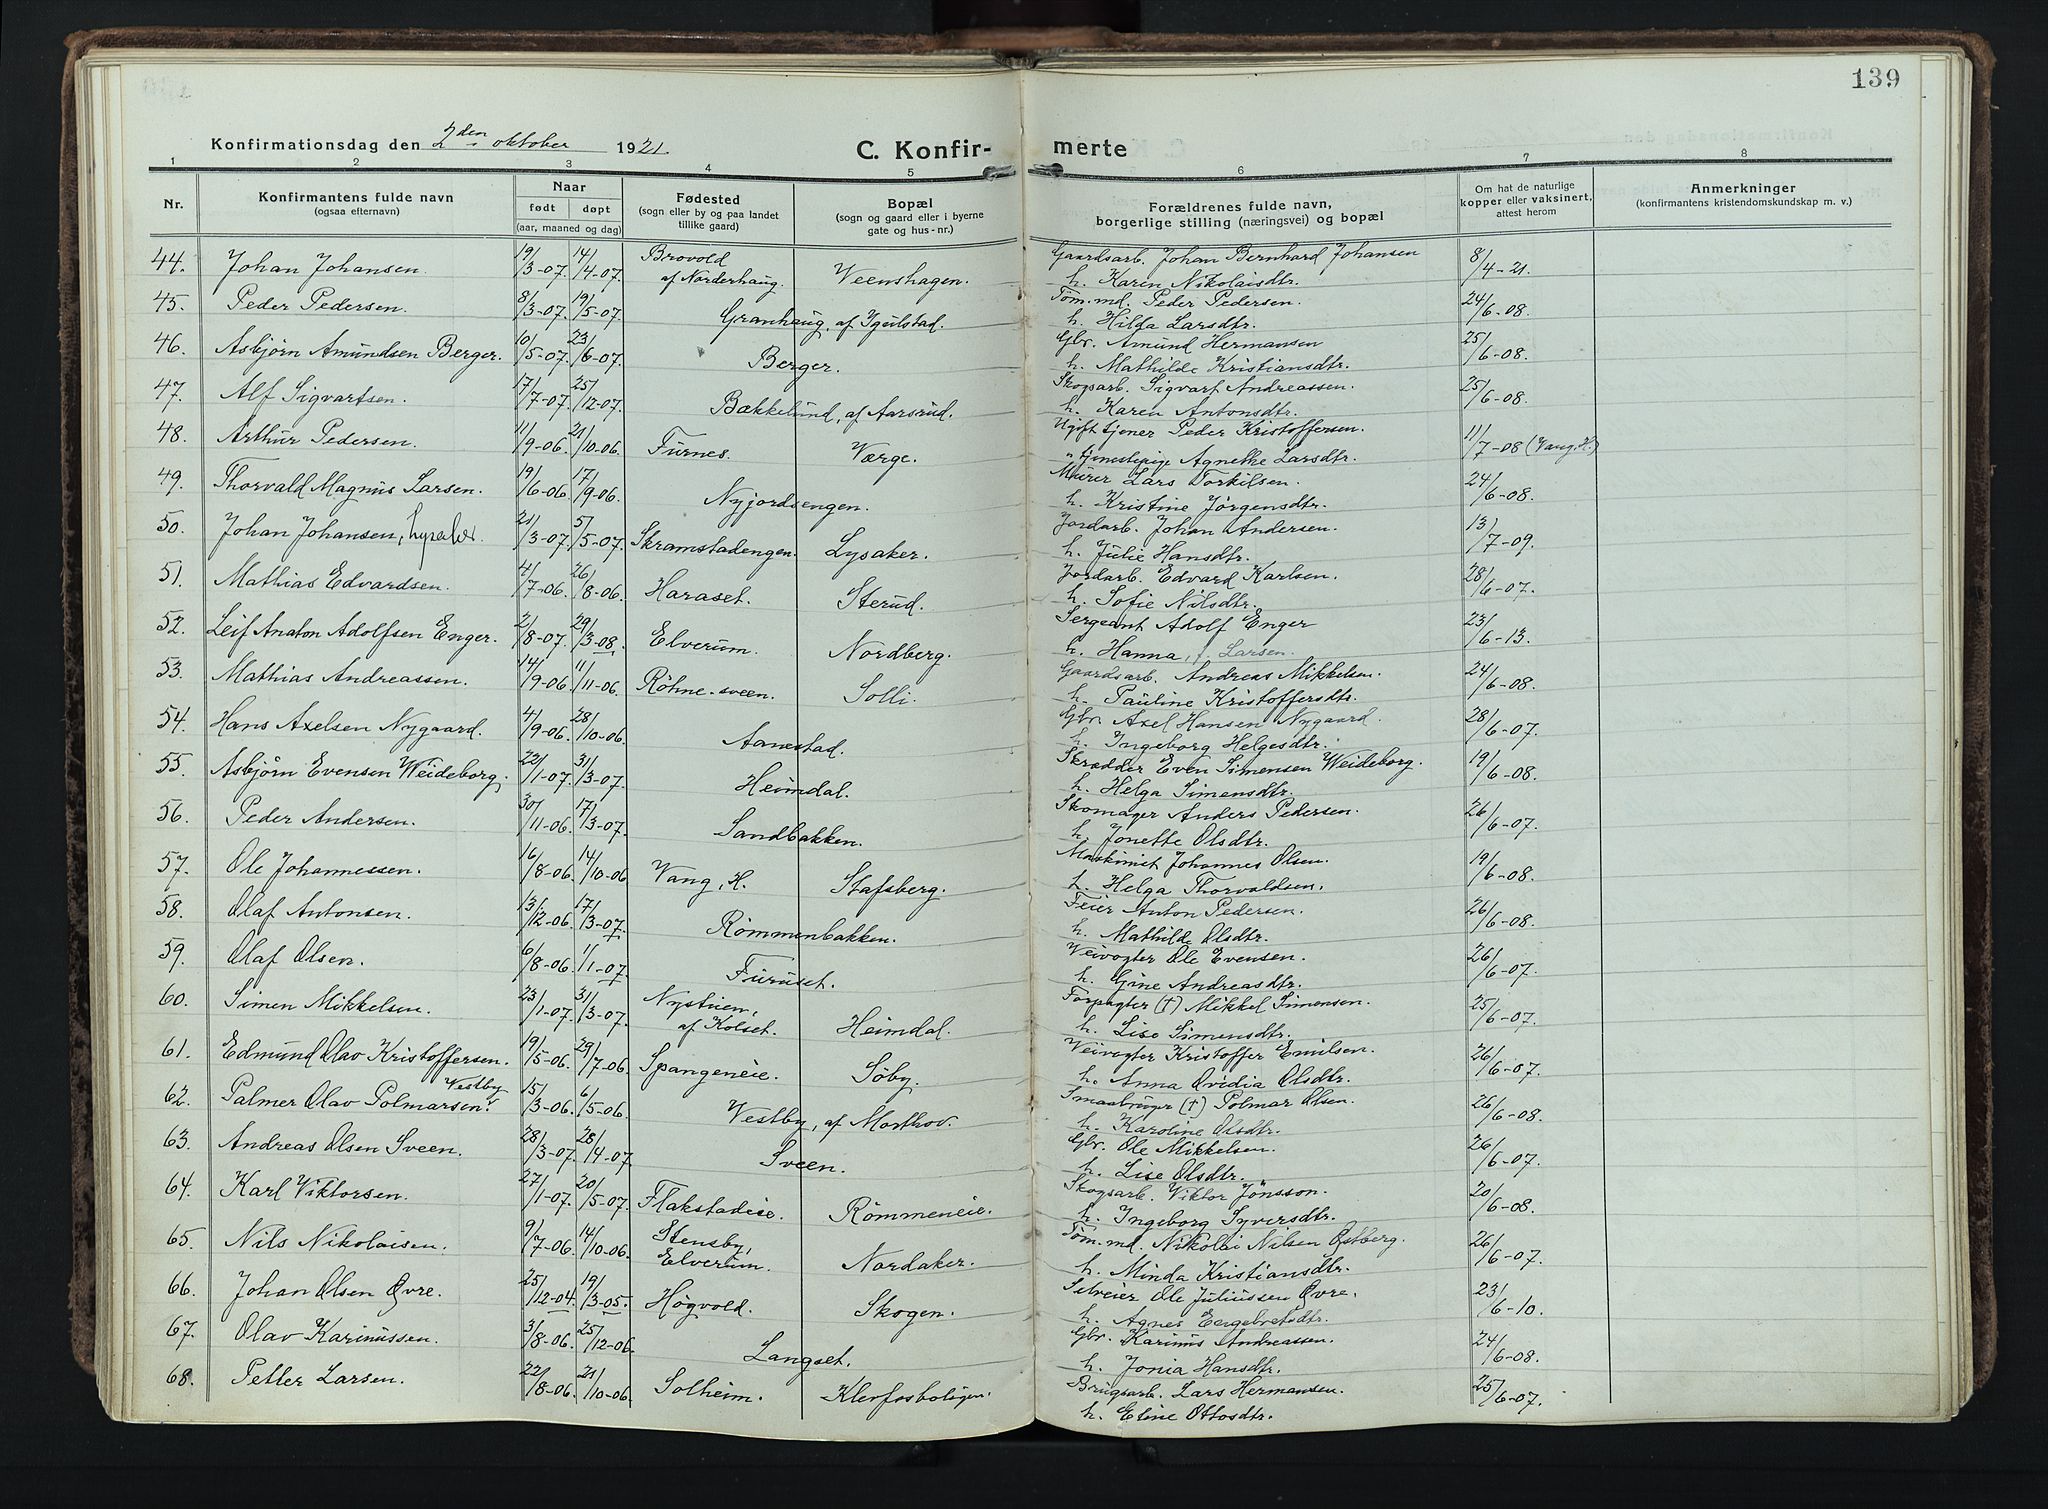 139
Konfirmationsdag den 2den oktober 1921.
C. Konfir- merte
1 2 3 4 5 6 7 8
Nr.
Konfirmantens fulde navn
(ogsaa efternavn)
Naar
født døpt
(aar, maaned og dag)
Fødested
(sogn eller by og paa landet
tillike gaard)
Bopæl
(sogn og gaard eller i byerne
gate og hus-nr.)
Forældrenes fulde navn,
borgerlige stilling (næringsvei) og bopæl
Om hat de naturlige
kopper eller vaksinert,
attest herom
Anmerkninger
(konfirmantens kristendomskundskap m. v.)
44. Johan Johansen. 19/3-07. 14/4-07. Brovold af Norderhaug. Veenshagen. Gaardsarb. Johan Bernhard Johansen 8/4-21.
h. Karen Nikolaisdtr.
45. Peder Pedersen. 8/3-07. 19/5-07. Granhaug, af Iguilstad. Tøm.md. Peder Pedersen. 24/6-08.
h. Hilda Larsdtr.
46. Asbjørn Amundsen Berger. 10/5-07. 23/6-07. Berger. Gbr. Amund Hermansen 25/6-08.
h. Mathilde Kristiansdtr.
47. Alf Sigvartsen. 17/7-07. 25/12-07. Bækkelund, af Aarsrud. Skogsarb. Sigvart Andreassen. 25/6-08.
h. Karen Antonsdtr.
48. Arthur Pedersen. 11/9-06. 21/10-06. Furnes. Værge. Ugift tjener Peder Kristoffersen. 11/7-08 (Vang, H.)
" tjenestepige Agnethe Larsdtr.
49. Thorvald Magnus Larsen. 19/6-06. 17/9-06. Nyjordsengen. Murer Lars Torkilsen. 24/6-08.
h. Kristine Jørgensdtr.
50. Johan Johansen, Lysaker. 21/3-07. 5/5-07. Skramstadengen. Lysaker. Jordarb. Johan Andersen. 13/7-09.
h. Julie Hansdtr.
51. Mathias Edvardsen. 4/7-06. 26/8-06. Haraset. Sterud. Jordarb. Edvard Karlsen. 28/6-07.
h. Sofie Nilsdtr.
52. Leif Anaton Adolfsen Enger. 2/8-07. 29/3-08. Elverum. Nordberg. Sergeant Adolf Enger 23/6-13.
h. Hanna, f. Larsen.
53. Mathias Andreassen. 14/9-06. 11/11-06. Røhne-sveen. Solli. Gaardsarb. Andreas Mikkelsen. 24/6-08.
h. Pauline Kristoffersdtr.
54. Hans Axelsen Nygaard. 4/9-06. 28/10-06. Aanestad. Gbr. Axel Hansen Nygaard. 28/6-07.
h. Ingeborg Helgesdtr.
55. Asbjørn Evensen Weideborg. 22/1-07. 31/3-07. Heimdal. Skrædder Even Simensen Weideborg. 19/6-08.
h. Helga Simensdtr.
56. Peder Andersen. 30/11-06. 17/3-07. Sandbakken. Skomager Anders Pedersen. 26/6-07.
h. Jonette Olsdtr.
57. Ole Johannessen. 16/8-06. 14/10-06 Vang, H. Stafsberg. Maskinist Johannes Olsen. 19/6-08.
h. Helga Thorvaldsen.
58. Olaf Antonsen. 13/12-06. 17/3-07. Rømmenbakken. Feier Anton Pedersen. 26/6-08.
h. Mathilde Olsdtr.
59. Olaf Olsen. 6/8-06. 1/1-07. Furuset. Veivogter Ole Evensen. 26/6-07.
h. Gine Andreasdtr.
60. Simen Mikkelsen. 23/1-07. 31/3-07. Nystuen, af Kolset. Heimdal. Forpagter (†) Mikkel Simensen. 25/6-07.
h. Lise Simensdtr.
61. Edmund Olav Kristoffersen. 19/5-06. 29/7-06. Spangeneie. Søby. Veivogter Kristoffer Emilsen. 26/6-07.
h. Anna Ovidia Olsdtr.
62. Palmer Olav Polmarsen Vestby. 15/3-06. 6/5-06. Vestby, af Morthov. Smaabruger (†) Polmar Olsen. 26/6-08.
h. Karoline Olsdtr.
63. Andreas Olsen Sveen. 28/3-07. 28/4-07. Sveen. Gbr. Ole Mikkelsen. 26/6-07.
h. Lise Olsdtr.
64. Karl Viktorsen. 27/1-07. 20/5-07. Flakstadeie. Rømmeneie. Skogsarb. Viktor Jönsson. 20/6-08.
h. Ingeborg Syversdtr.
65. Nils Nikolaisen. 9/7-06. 14/10-06. Stensby, Elverum. Nordaker. Tøm.md. Nikolai Nilsen Østberg. 26/6-07.
h. Minda Kristiansdtr.
66. Johan Olsen Øvre. 25/12-04. 19/3-05. Høgvold. Skogen. Selveier Ole Juliussen Øvre. 23/6-10.
h. Agnes Engebretsdtr.
67. Olav Karinussen. 3/8-06. 25/12-06. Langset. Gbr. Karinus Andreassen. 24/6-08.
h. Jonia Hansdtr.
68. Petter Larsen. 22/8-06. 21/10-06. Solheim. Klevfosboligen. Brugsarb. Lars Hermansen. 25/6-07.
h. Eline Ottosdtr.